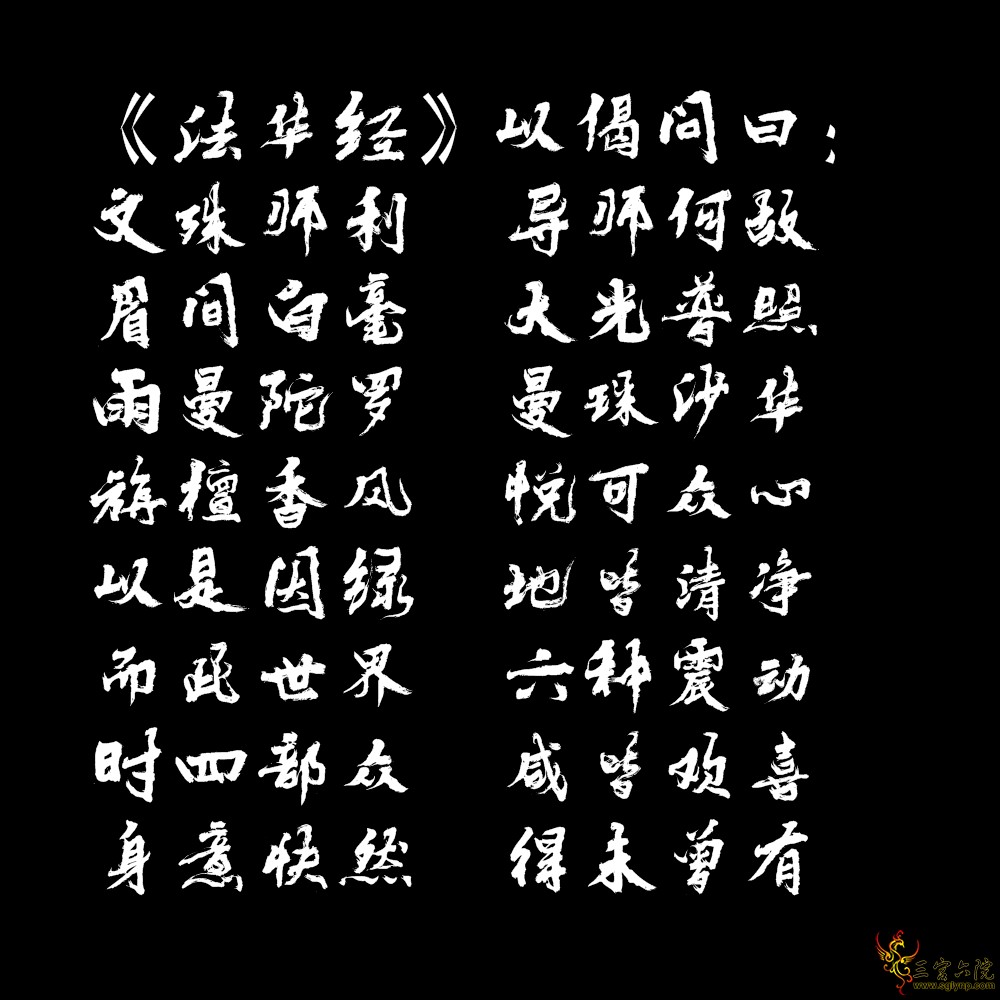 《法华经》以偈问曰；
文殊师利 导师何故
眉间白毫 大光普照
雨曼陀罗 曼珠沙华
旃檀香风 悦可众心
以是因缘 地皆清净
而此世界 六种震动
时四部众 咸皆欢喜
身意快然 得未曾有
三宫六院
www.sglynp.com